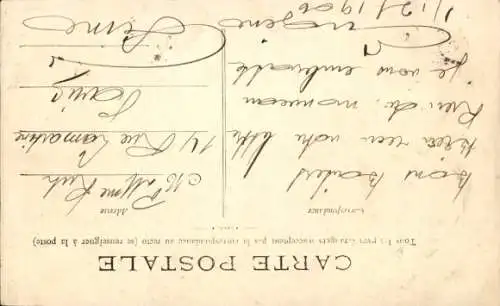 CARTE POSTALE
Tous les pays étrangers n'acceptent pas la correspondance au recto (se renseigner à la poste)
Correspondance
Adresse
Bons Baisers
bien reçu votre lettre
Rien de nouveau
Je vous embrasse
Eugène
1906
Mlle
14 Rue Lamartine
Paris
Seine